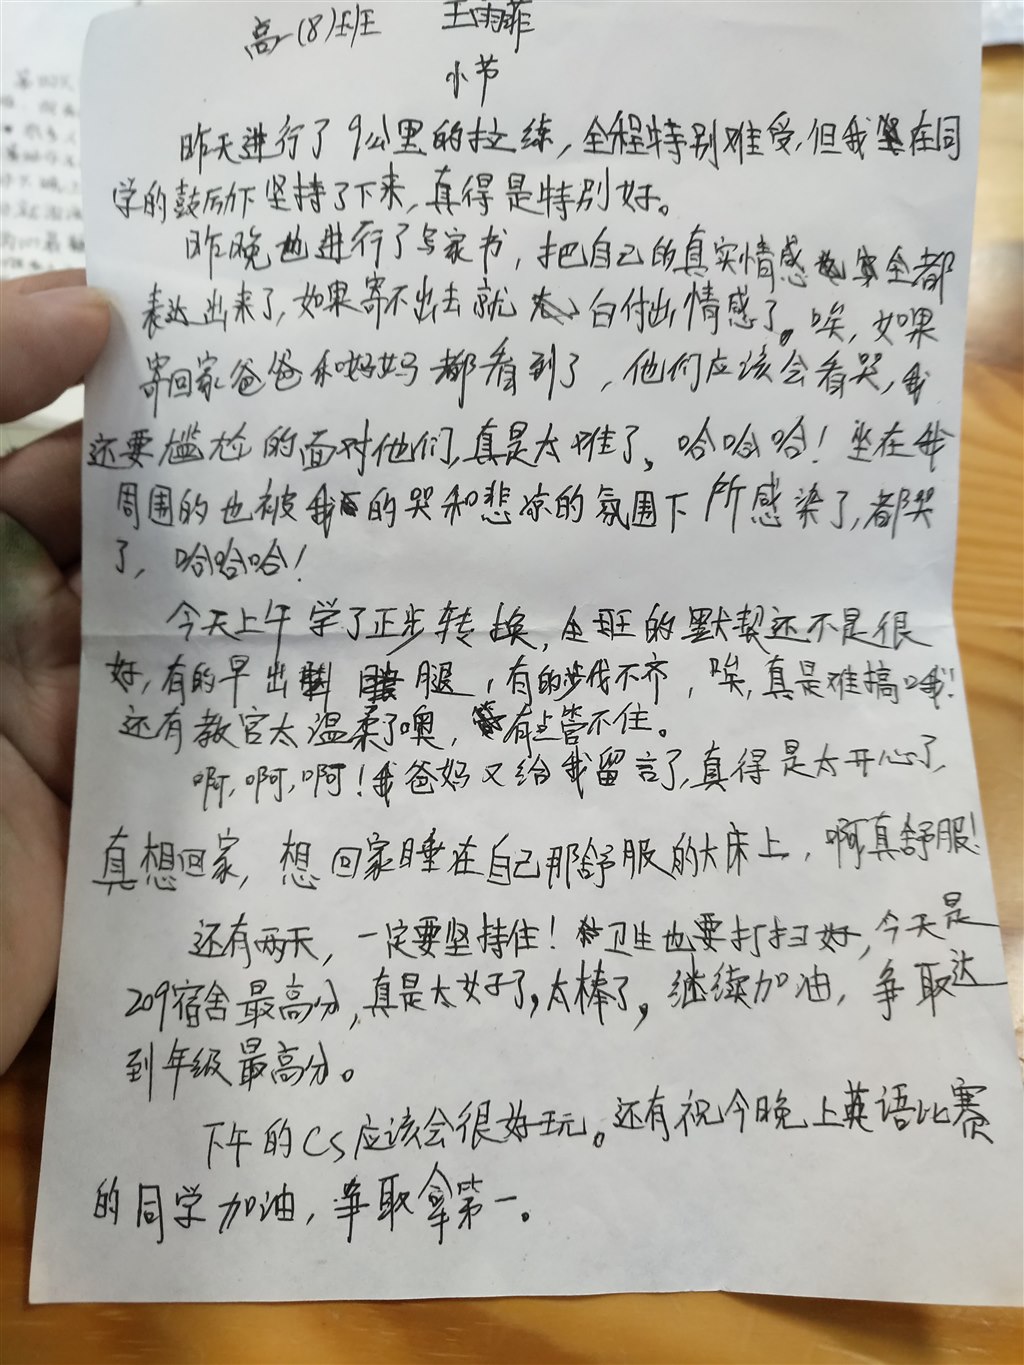 高一(8)班 王雨菲
小节
昨天进行了9公里的拉练，全程特别难受，但我在同
学的鼓励下坚持了下来，真得是特别好。
昨晚也进行了写家书，把自己的真实情感全都
表达出来了，如果寄不出去就白付出情感了。唉，如果
寄回家爸爸和妈妈都看到了，他们应该会看哭，我
还要尴尬的面对他们，真是太难了。哈哈哈！坐在我
周围的也被我的哭和悲凉的氛围下所感染了，都哭
了，哈哈哈！
今天上午学了正步转换，全班的默契还不是很
好，有的早出腿，有的步伐不齐，唉，真是难搞哦！
还有教官太温柔了噢，有点管不住。
啊，啊，啊！我爸妈又给我留言了，真得是太开心了，
真想回家，想回家睡在自己那舒服的大床上，啊真舒服！
还有两天，一定要坚持住！卫生也要打扫好，今天是
209宿舍最高分，真是太好了，太棒了，继续加油，争取达
到年级最高分。
下午的CS应该会很好玩。还有祝今晚上英语比赛
的同学加油，争取拿第一。